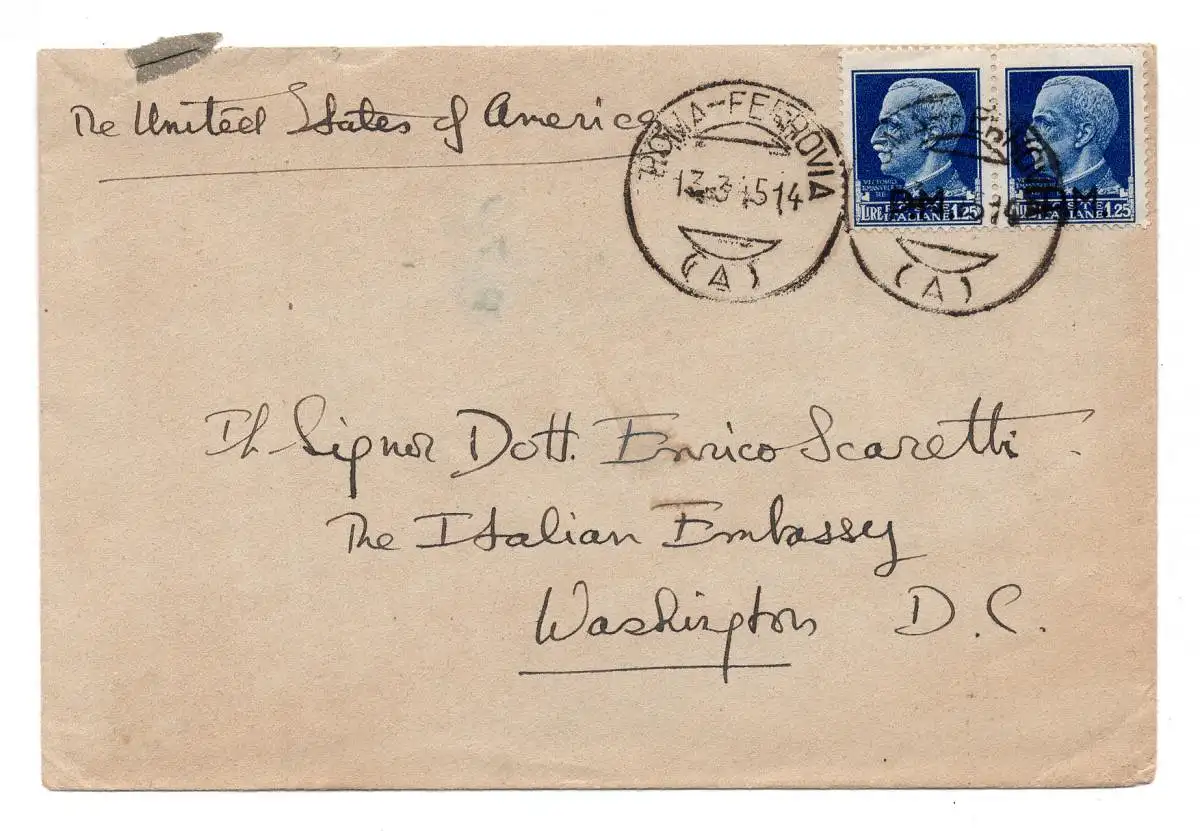 The United States of America
ROMA-FERROVIA
13.3.45 14
(A)
(A)
VITTORIO
EMANUELE III
RE
LIRE POSTE ITALIANE 1.25
PM
POSTE ITALIANE 1.25
PM
Ill Signor Dott. Enrico Scaretti.
The Italian Embassy
Washington D.C.